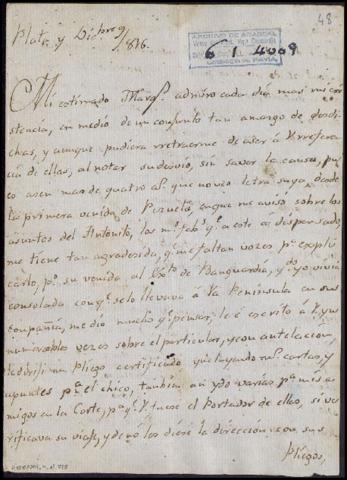 48
ARCHIVO DE ABASCAL
6 1 4009
Plata y Dicbre 9
/816.
Mi estimado Marqs. admiro cada día mas mi exis
tencia, en medio de un conjunto tan amargo de desdi
chas, y aunque pudiera retraerme de acer á V. referen
cia de ellas, al notar su desvío, sin saver la causa, pues
ace ya mas de quatro ms. que no veo letra suya, desde
la primera venida de Pezuela, en que me aviso sobre los
asuntos del Antonito, los ms. fabs. q. a este á dispensado,
me tiene tan agradesida, q. me faltan voces pa. expli
carlo, po. su venida al Exto. de Banguardia, qdo. yo vivia
consolada con q. se lo llevava á la Peninsula en su
compañia, me dió mucho q. pensar; le é escrito á V. ynu
numerables vezes sobre el particular, y con antelacion,
le dirijí un Pliego certificado yncluyendo ms. cartas, y
apuntes pa. el chico, tambien an ydo varias pa. mis a
migos en la Corte, pa. q. V. fuese el Portador de ellas, si ve
rificava su viaje, y de nó les diese la direccion con sus
Pliegos,